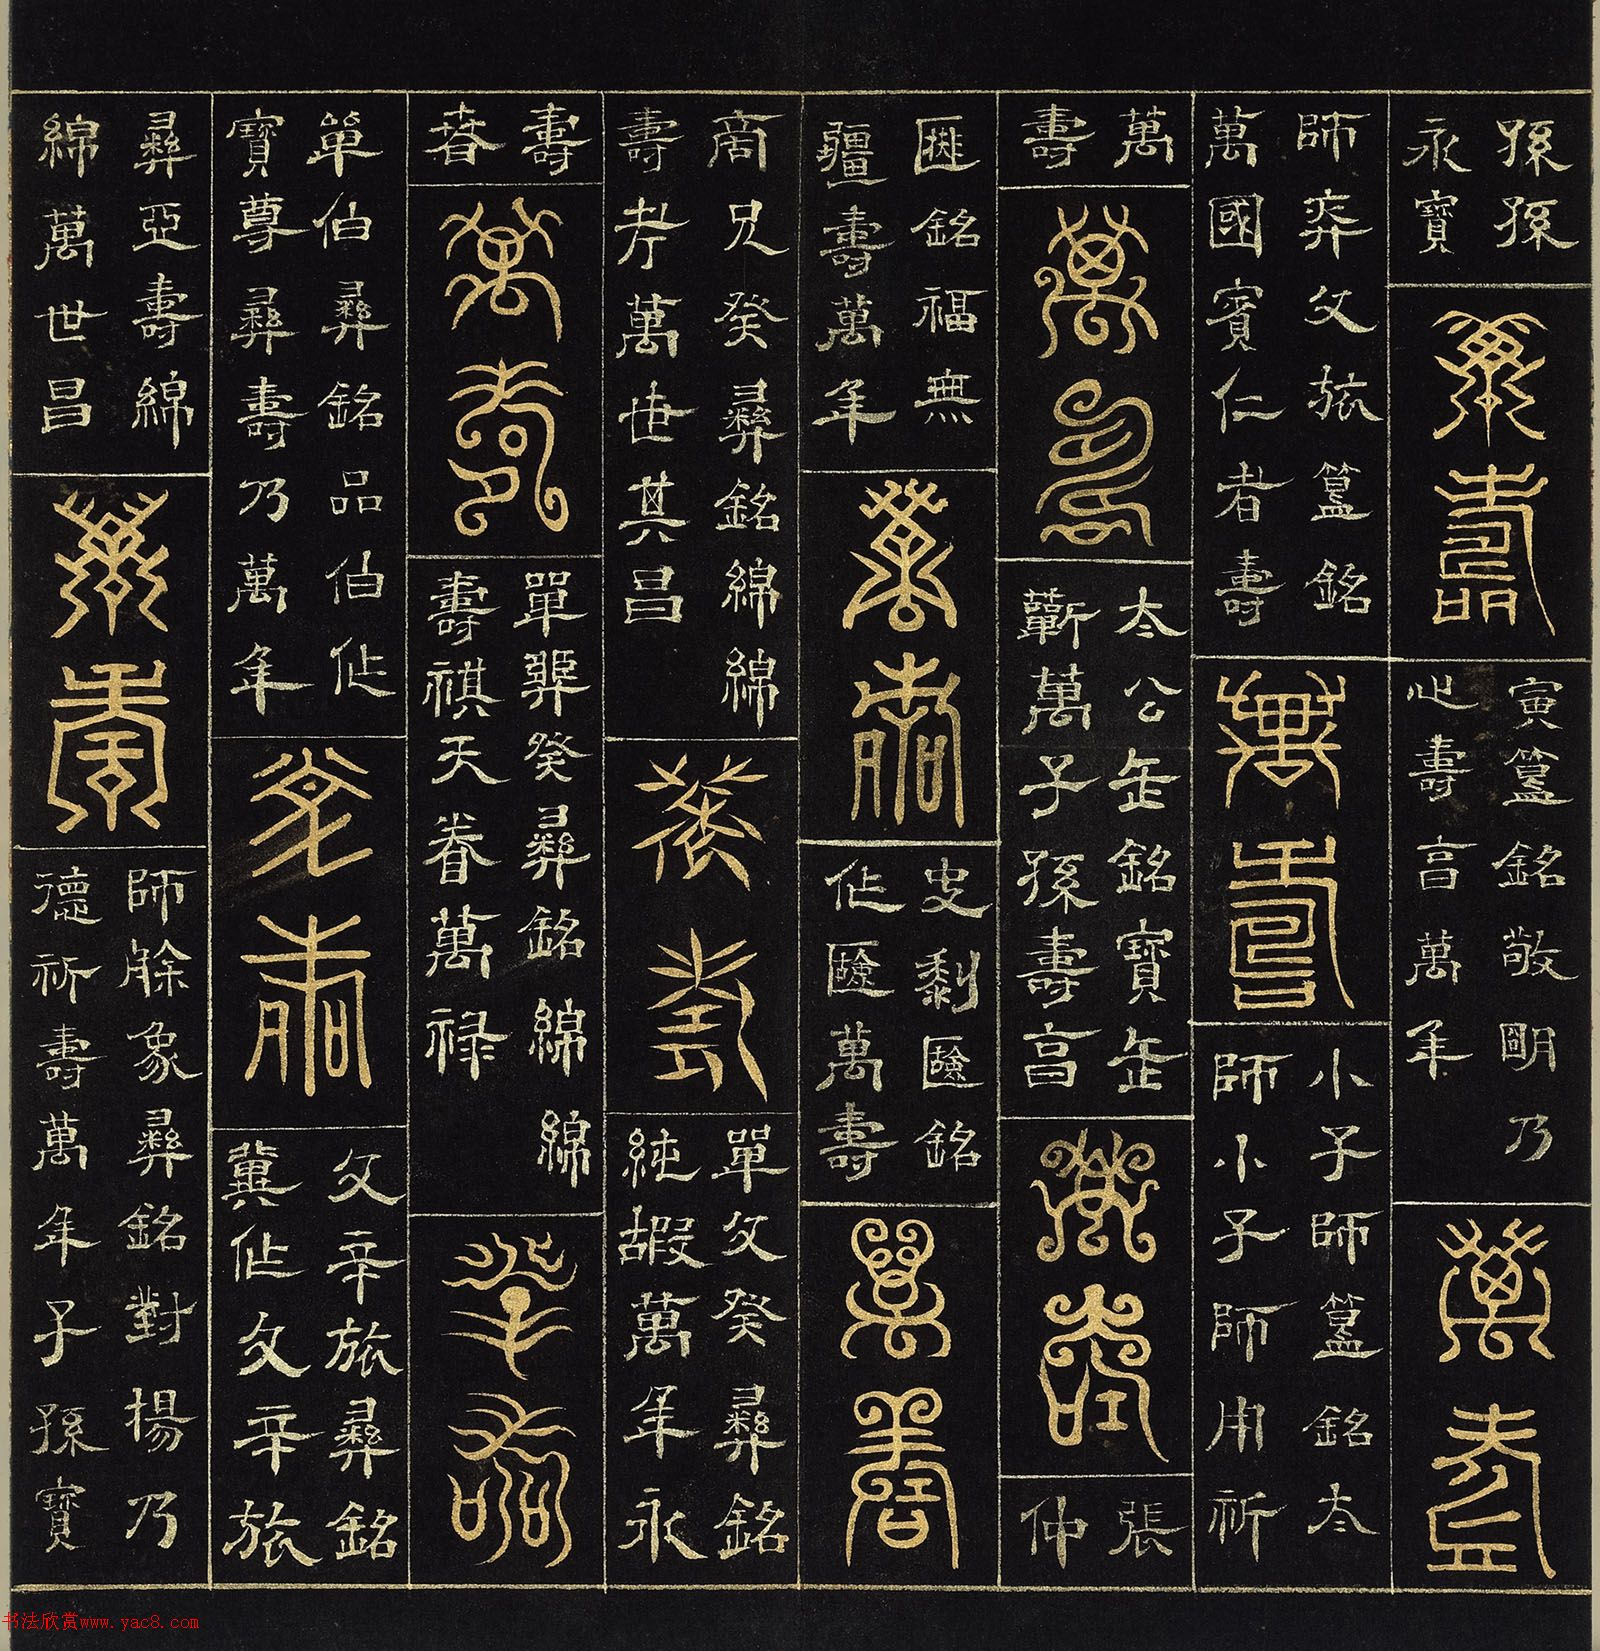 孫孫
永寶
萬壽
寅簋銘敬明乃
心壽萬年
萬壽
師父旅簋銘
萬國賓仁者壽
萬壽
小子師簋銘太
師小子師用祈
萬
壽
萬壽
太公缶銘寶缶
蘄萬子孫壽亯
萬壽
張
仲
匜銘福無
疆壽萬年
萬壽
史黎匳銘
作匳萬壽
萬壽
商兄癸彝銘綿綿
壽考萬世其昌
萬壽
單父癸彝銘
純嘏萬年永
壽
春
萬壽
單癸彝銘綿綿
壽祺天眷萬祿
萬壽
單伯彝銘品伯作
寶尊彝壽乃萬年
萬壽
父辛旅彝銘
冀作父辛旅
彝亞壽綿
綿萬世昌
萬壽
師艅象彝銘對揚乃
德祈壽萬年子孫寶
书法欣赏www.yac8.com